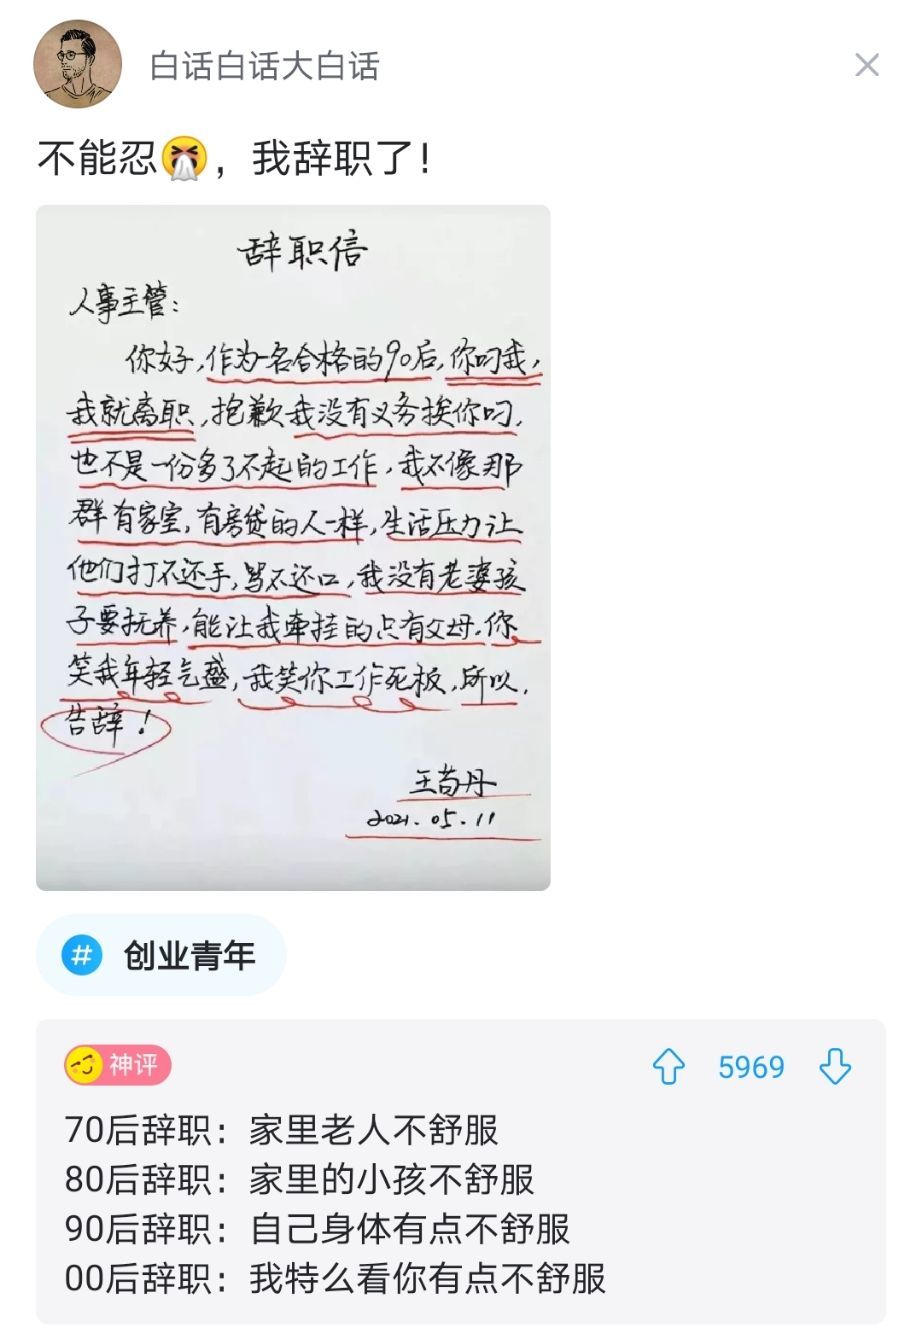 白话白话大白话
不能忍🤧，我辞职了！
辞职信
人事主管：
你好，作为一名合格的90后，你叼我，
我就离职，抱歉我没有义务挨你叼，
也不是一份多了不起的工作，我不像那
群有家室，有房贷的人一样，生活压力让
他们打不还手，骂不还口，我没有老婆孩
子要抚养，能让我牵挂的只有父母，你
笑我年轻气盛，我笑你工作死板，所以，
告辞！
王苟丹
2021.05.11
# 创业青年
神评
5969
70后辞职：家里老人不舒服
80后辞职：家里的小孩不舒服
90后辞职：自己身体有点不舒服
00后辞职：我特么看你有点不舒服